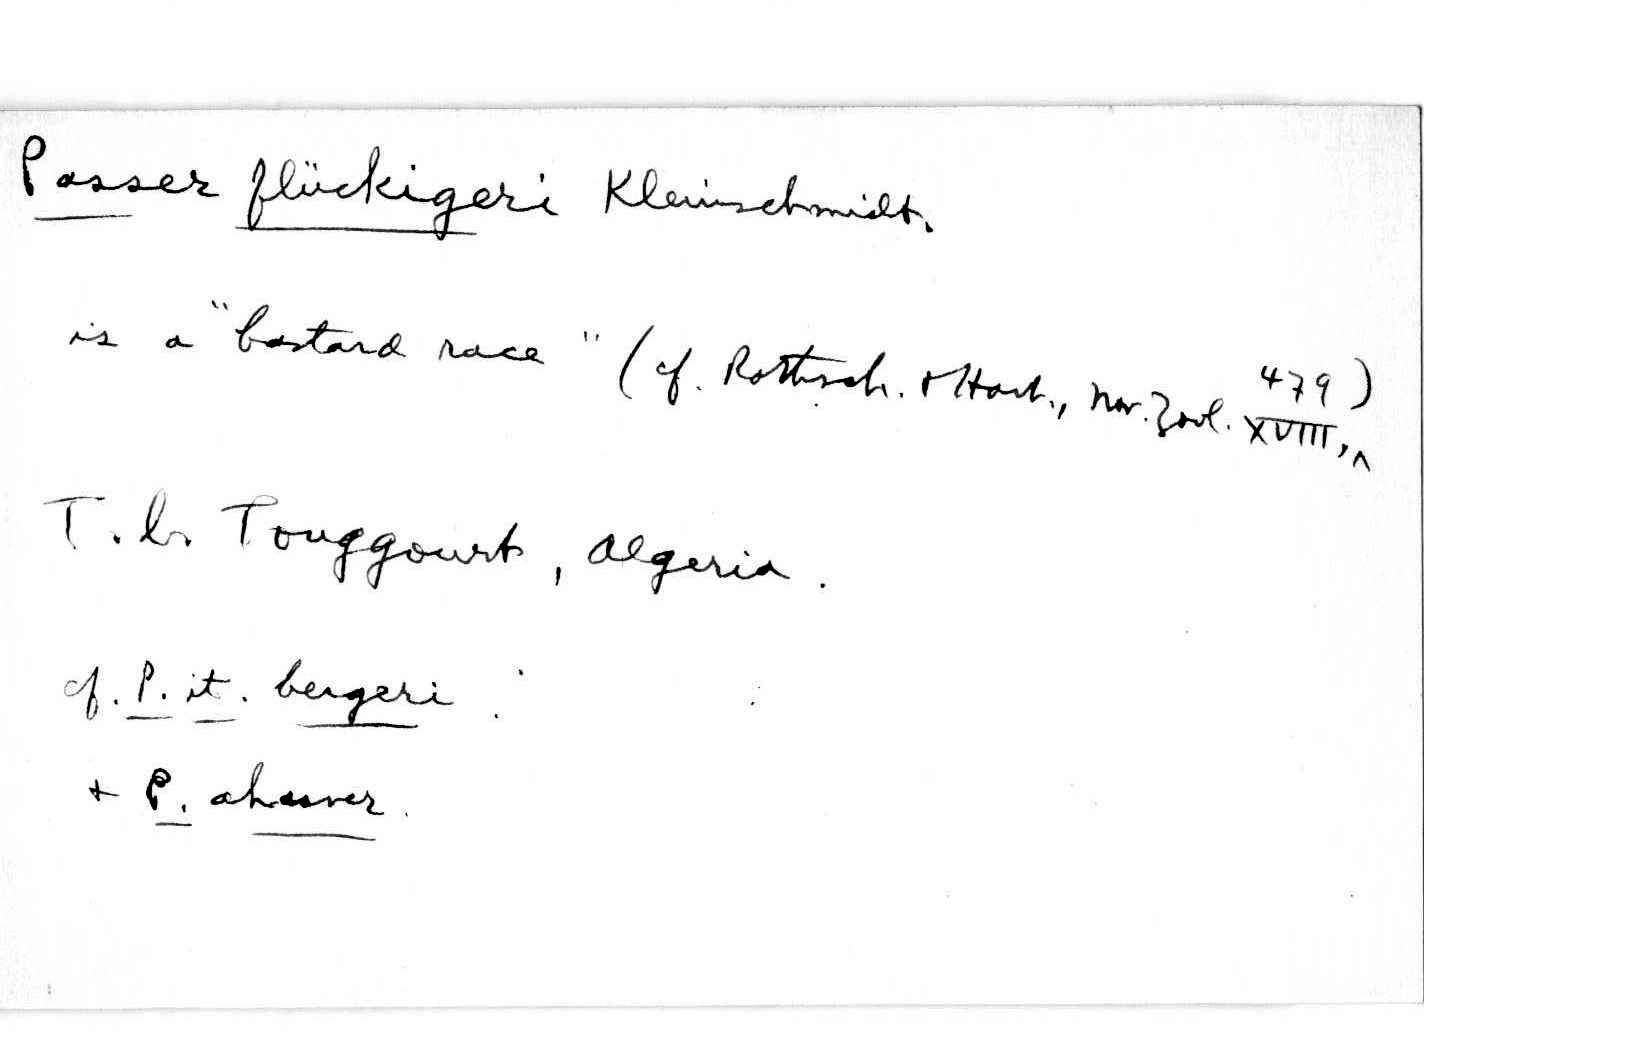 Passer flückigeri Kleinschmidt.
is a "bastard race" (cf. Rothsch. & Hart., Nov. Zool. XVIII, 479)
T. l. Touggourt, Algeria.
cf. P. it. bergeri :
+ P. ahasver.